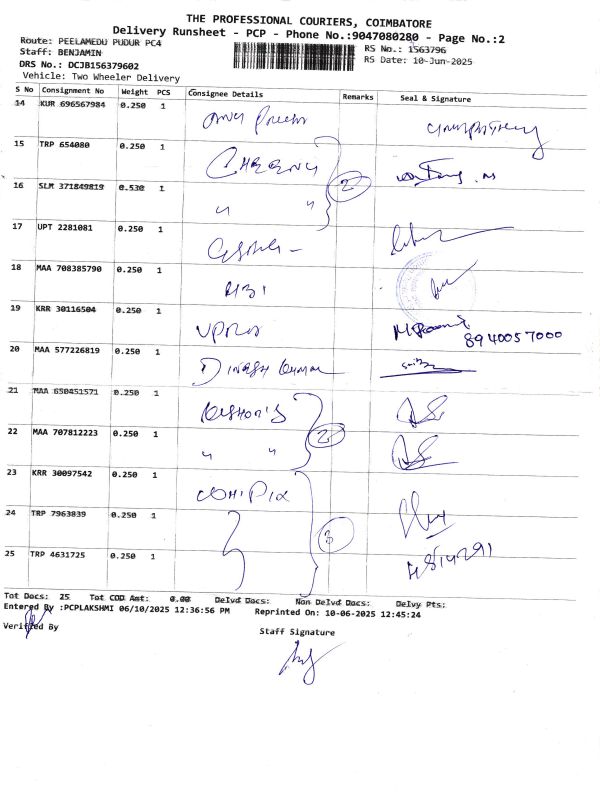 THE PROFESSIONAL COURIERS, COIMBATORE
Delivery Runsheet - PCP - Phone No.:9047080280 - Page No.:2
Route: PEELAMEDU PUDUR PC4
RS No.: 1563796
Staff: BENJAMIN
RS Date: 10-Jun-2025
DRS No.: DCJB156379602
Vehicle: Two Wheeler Delivery
S No Consignment No Weight PCS Consignee Details Remarks Seal & Signature
14 KUR 696567984 0.250 1
15 TRP 654080 0.250 1
16 SLM 371849819 0.530 1 " " 2
17 UPT 2281081 0.250 1
18 MAA 708385790 0.250 1
19 KRR 30116504 0.250 1
8940057000
20 MAA 577226819 0.250 1 Dinesh Kumar
21 MAA 650451571 0.250 1
22 MAA 707812223 0.250 1 " " 2
23 KRR 30097542 0.250 1
24 TRP 7963839 0.250 1 3
25 TRP 4631725 0.250 1
Tot Docs: 25 Tot COD Amt: 0.00 Delvd Docs: Non Delvd Docs: Delvy Pts:
Entered By :PCPLAKSHMI 06/10/2025 12:36:56 PM Reprinted On: 10-06-2025 12:45:24
Verified By
Staff Signature